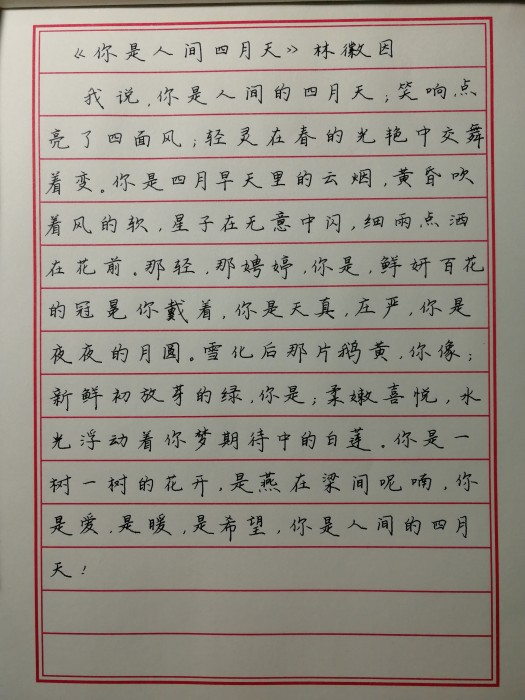 《你是人间四月天》林徽因
我说，你是人间的四月天；笑响点
亮了四面风；轻灵在春的光艳中交舞
着变。你是四月早天里的云烟，黄昏吹
着风的软，星子在无意中闪，细雨点洒
在花前。那轻，那娉婷，你是，鲜妍百花
的冠冕你戴着，你是天真，庄严，你是
夜夜的月圆。雪化后那片鹅黄，你像；
新鲜初放芽的绿，你是；柔嫩喜悦，水
光浮动着你梦期待中的白莲。你是一
树一树的花开，是燕在梁间呢喃，你
是爱，是暖，是希望，你是人间的四月
天！